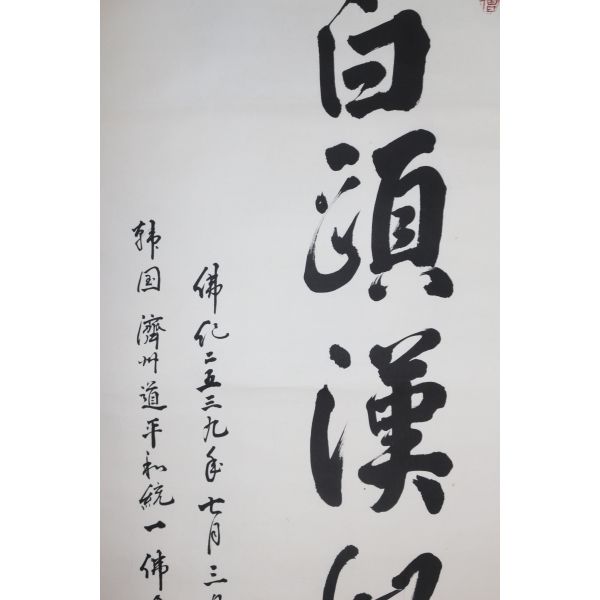 白頭漢
佛紀二五三九年七月三
韩国濟州道平和統一佛